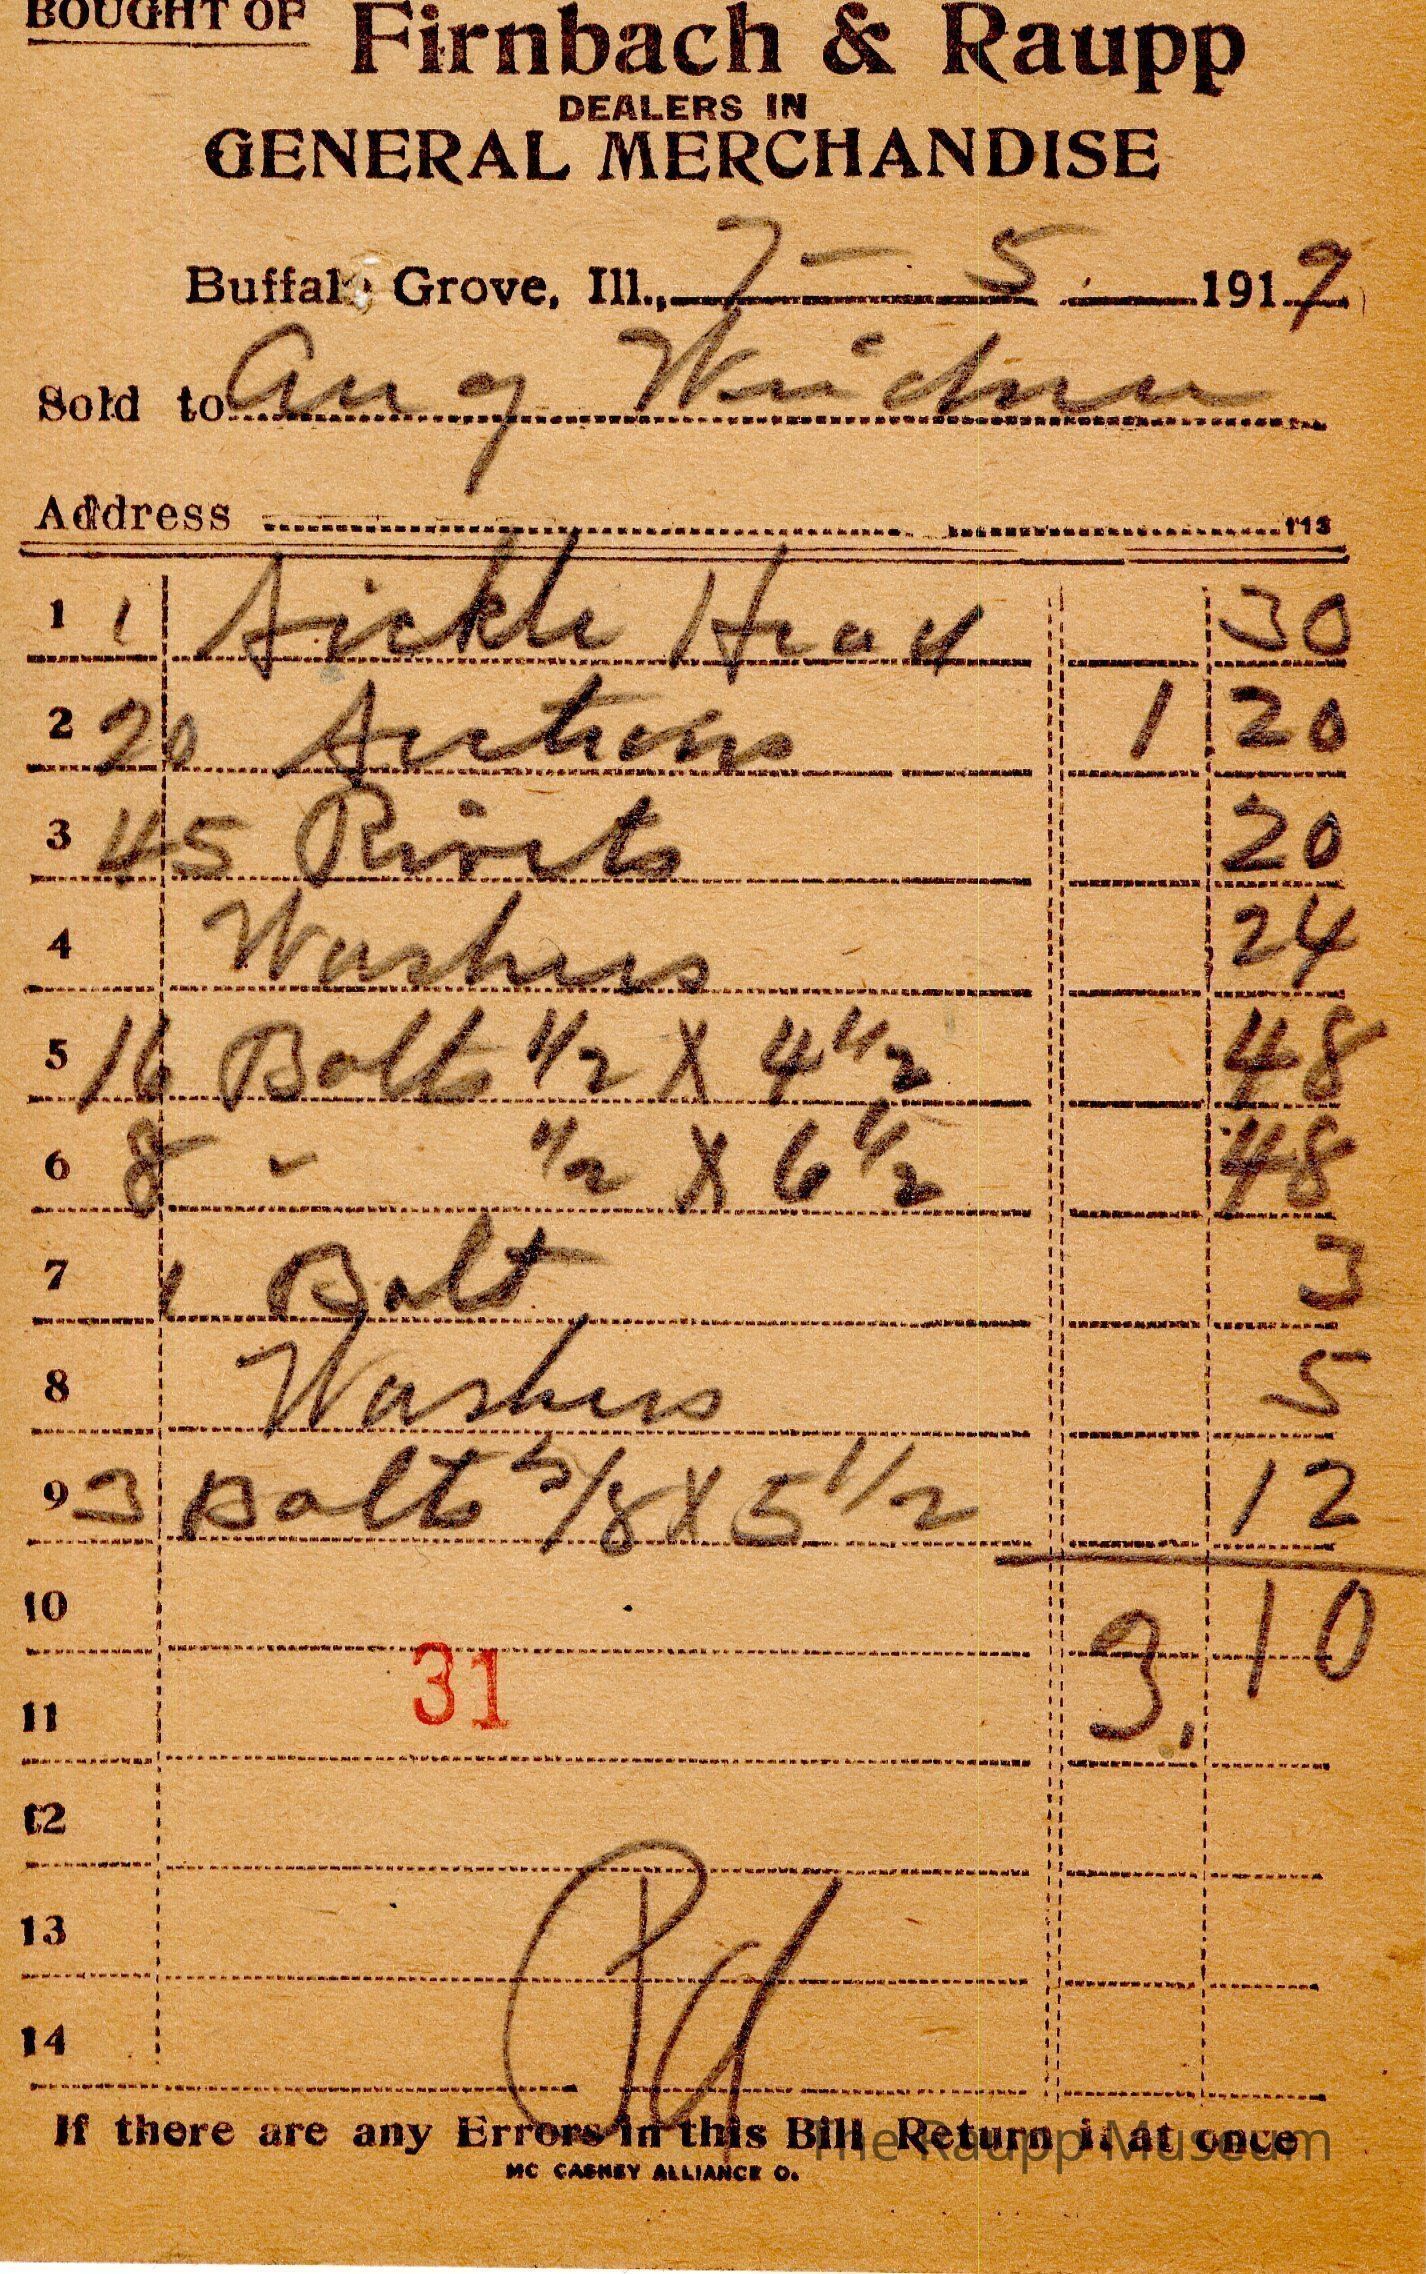 BOUGHT OF Firnbach & Raupp
DEALERS IN
GENERAL MERCHANDISE
Buffalo Grove, Ill., 7 - 5 1919
Sold to Aug Weidner
Address 113
1 1 Sickle Head 30
2 20 Sections 1 20
3 45 Rivets 20
4 Washers 24
5 16 Bolts 1/2 X 4 1/2 48
6 8 " 1/2 X 6 1/2 48
7 1 Bolt 3
8 Washers 5
9 3 Bolts 5/8 X 5 1/2 12
10 3.10
31
11
12
13
14
Pd
If there are any Errors in this Bill Return it at once
MC CASKEY ALLIANCE O.
The Raupp Museum